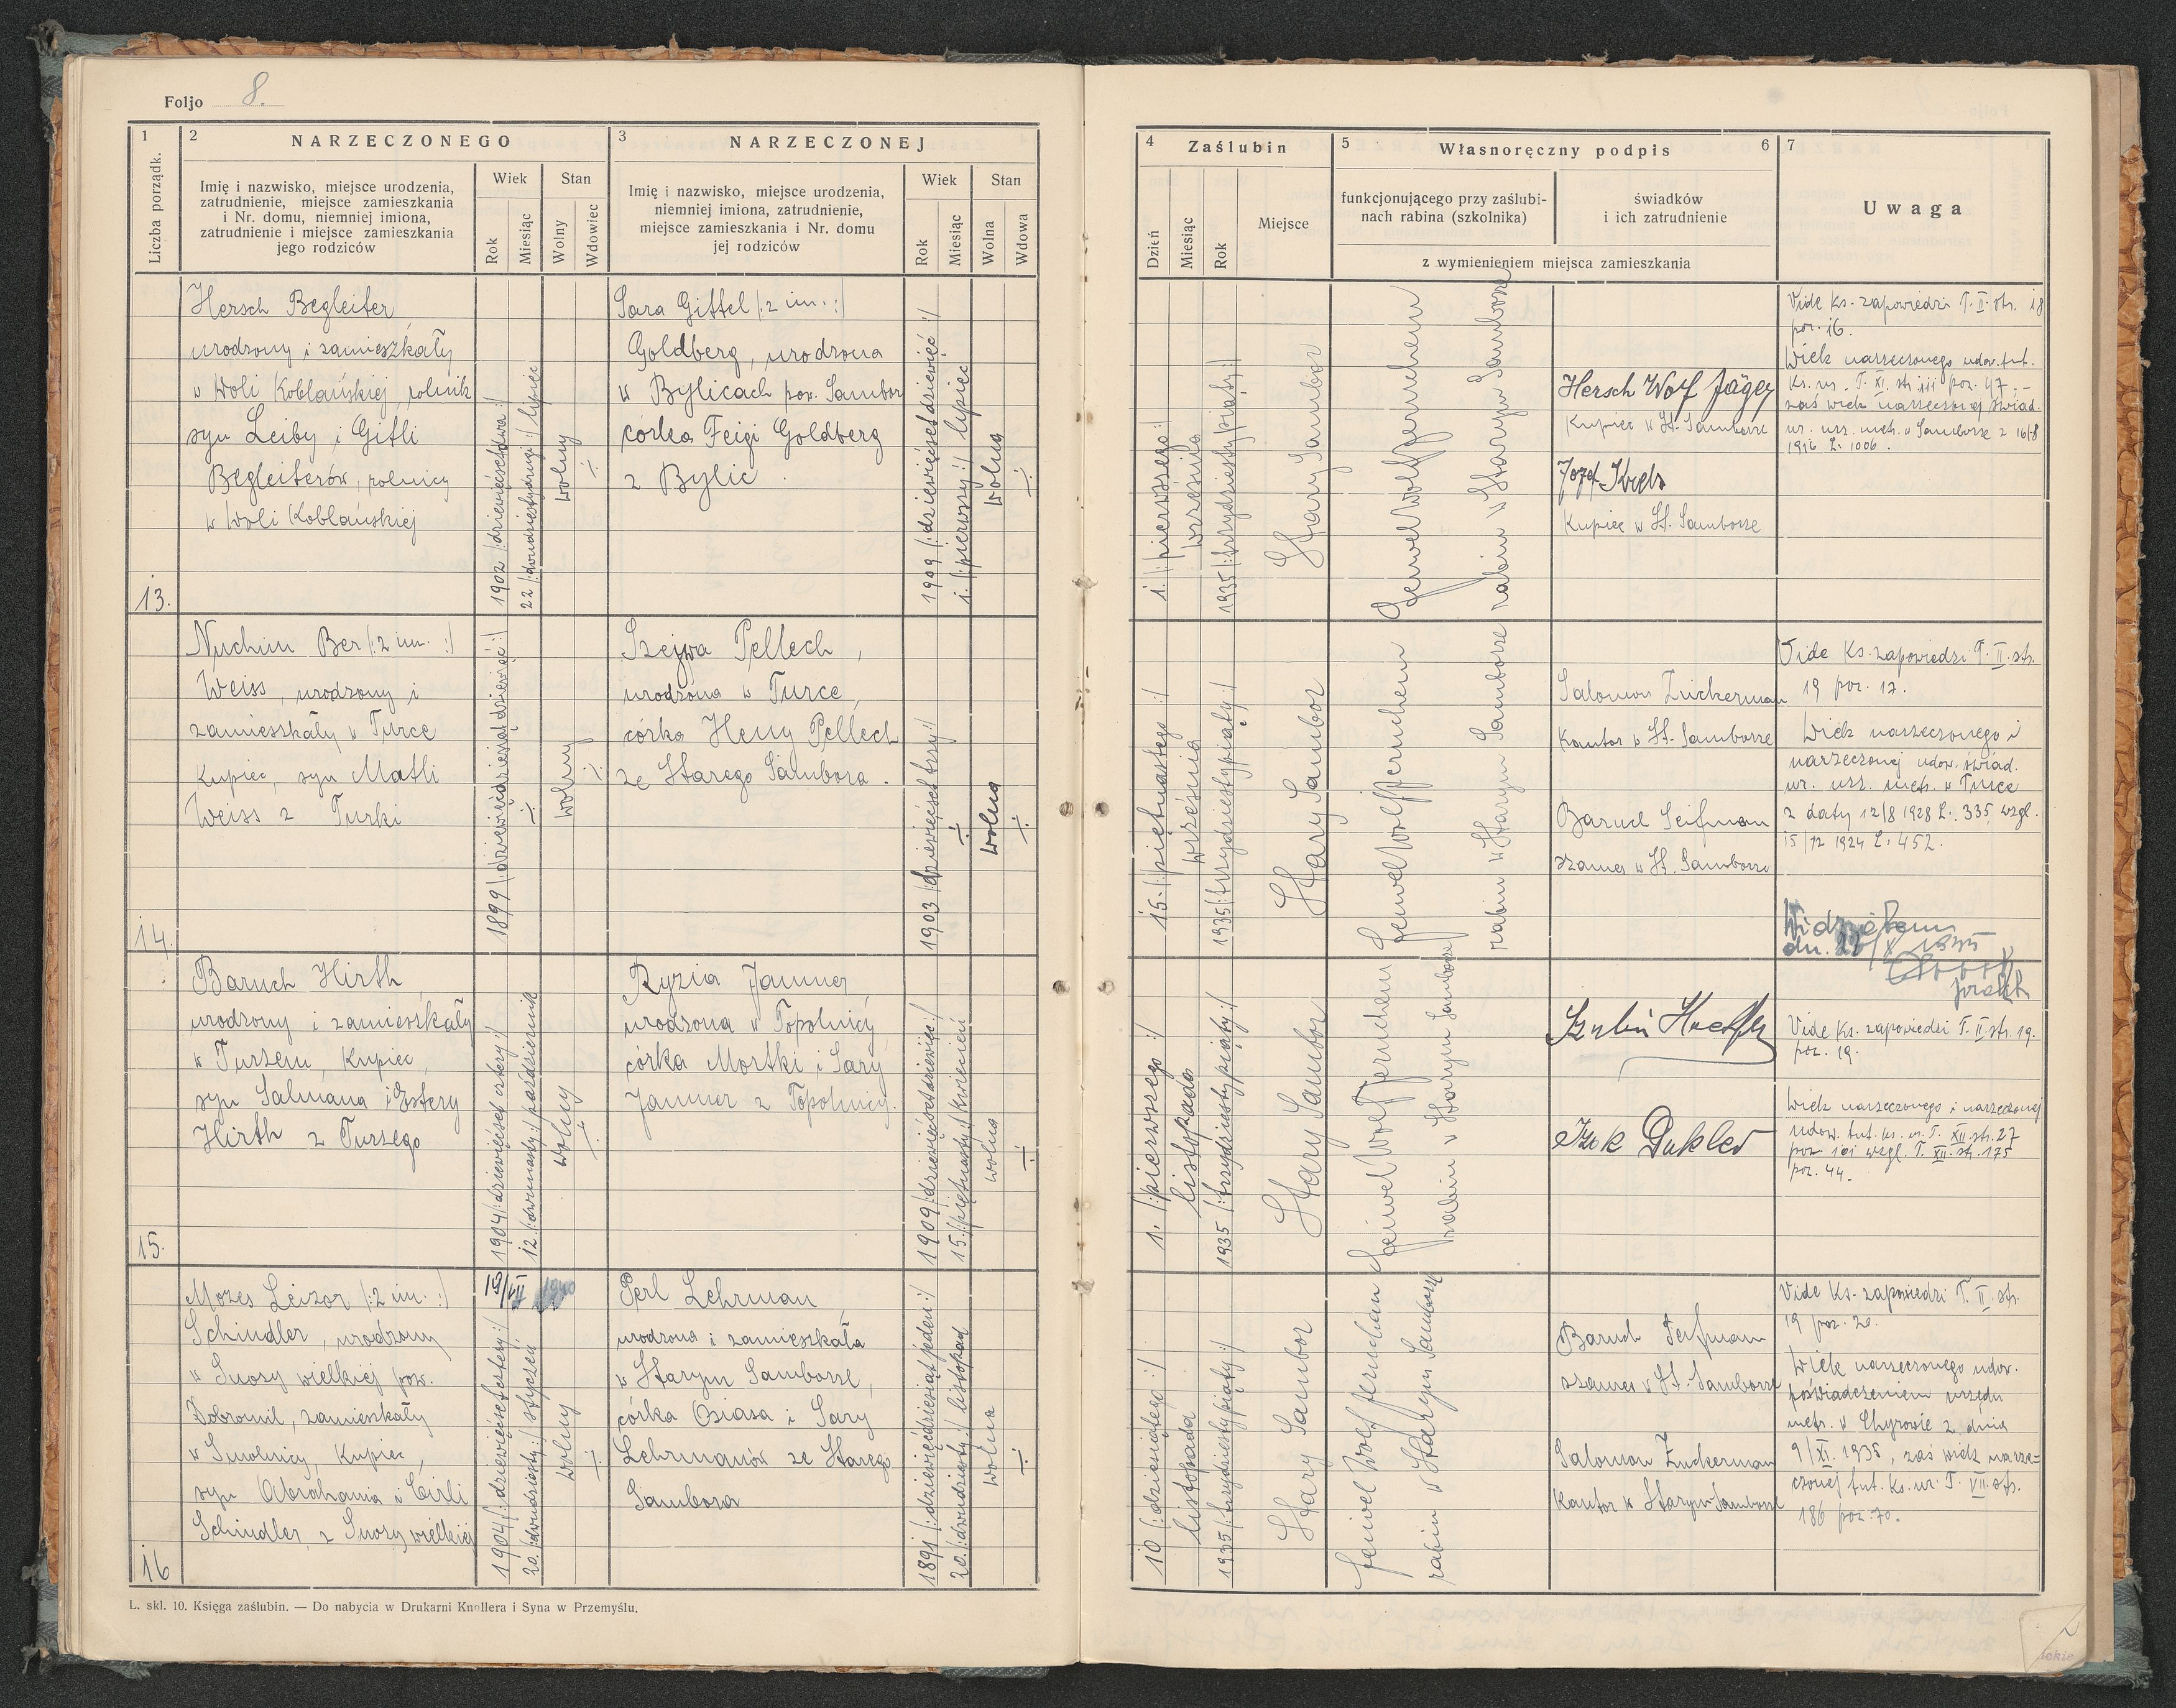 Foljo 8.
1
Liczba porządk.
2 NARZECZONEGO
Imię i nazwisko, miejsce urodzenia,
zatrudnienie, miejsce zamieszkania
i Nr. domu, niemniej imiona,
zatrudnienie i miejsce zamieszkania
jego rodziców
Wiek
Rok
Miesiąc
Stan
Wolny
Wdowiec
3 NARZECZONEJ
Imię i nazwisko, miejsce urodzenia,
niemniej imiona, zatrudnienie,
miejsce zamieszkania i Nr. domu
jej rodziców
Wiek
Rok
Miesiąc
Stan
Wolna
Wdowa
4 Zaślubin
Dzień
Miesiąc
Rok
Miejsce
5 Własnoręczny podpis 6
funkcjonującego przy zaślubi-
nach rabina (szkolnika)
świadków
i ich zatrudnienie
z wymienieniem miejsca zamieszkania
7
Uwaga
13.
Hersch Begleiter
urodzony i zamieszkały
w Woli Koblańskiej, rolnik
syn Leiby i Gitli
Begleiterów, rolnicy
w Woli Koblańskiej
1902 /:dziewięćset dwa:/
22 /:dwudziestydrugi:/ lipiec
wolny
Sara Gittel /:2 im.:/
Goldberg, urodzona
w Bylicach pow. Sambor
córka Feigi Goldberg
z Bylic
1909 /:dziewięćset dziewięć:/
1. /:pierwszy:/ lipiec
wolna
1. /:pierwszego:/
września
1935 /:trzydziesty piąty:/
Stary Sambor
Feiwel Wolf
rabin w Starym Samborze
Hersch Wolf Jäger
Kupiec w St. Samborze
Kupiec w St. Samborze
Vide Ks. zapowiedzi T. II. str. 18
poz. 16.
Wiek narzeczonego udow. tut.
Ks. ur. T. XI. str. 111 poz. 47. –
zaś wiek narzeczonej świad.
ur. urz. metr. w Samborze z 16/8
1926 L. 1006.
14.
Nuchim Ber /:2 im.:/
Weiss, urodzony i
zamieszkały w Turce
Kupiec, syn Matli
Weiss z Turki
1899
wolny
Szejwa Pellech,
urodzona w Turce,
córka Heny Pellech
ze Starego Sambora.
1903 /:dziewięćset trzy:/
wolna
15. /:piętnastego:/
września
1935 /:trzydziesty piąty:/
Stary Sambor
Feiwel Wolf
rabin w Starym Samborze
Salomon Zuckerman
Kantor w St. Samborze
Baruch Seifman
szames w St. Samborze
Vide Ks. zapowiedzi T. II. str.
19 poz. 17.
Wiek narzeczonego i
narzeczonej udow. świad.
ur. urz. metr. w Turce
z daty 12/8 1928 L. 335, wzgl.
15/12 1924 L. 452.
Widziałem
15.
Baruch Hirth,
urodzony i zamieszkały
w Turzem, Kupiec,
syn Salmana i Estery
Hirth z Turzego
1904 /:dziewięćset cztery:/
12. /:dwunasty:/ październik
wolny
Ryzia Jammer,
urodzona w Topolnicy,
córka Mortki i Sary
Jammer z Topolnicy.
1909 /:dziewięćset dziewięć:/
15. /:piętnasty:/ Kwiecień
wolna
1. /:pierwszego:/
listopada
1935 /:trzydziesty piąty:/
Stary Sambor
Feiwel Wolf
rabin w Starym Samborze
Izak Dukler
Vide Ks. zapowiedzi T. II. str. 19.
poz. 19.
Wiek narzeczonego i narzeczonej
udow. tut. ks. ur. T. XII. str. 27
poz 101 wzgl. T. XII. str. 175
poz. 44.
16
Mozes Leizor /:2 im.:/
Schindler, urodzony
w Suszy wielkiej pow.
Dobromil, zamieszkały
w Smolnicy, Kupiec,
syn Abrahama i Cirli
Schindler, z Suszy wielkiej
19/VII 1940
1904 /:dziewięćset cztery:/
20. /:dwudziesty:/ styczeń
wolny
Perl Lehrman,
urodzona i zamieszkała
w Starym Samborze,
córka Osiasa i Sary
Lehrmanów ze Starego
Sambora
1891 /:dziewięćdziesiąt jeden:/
20. /:dwudziesty:/ listopad
wolna
10 /:dziesiątego:/
listopada
1935 /:trzydziesty piąty:/
Stary Sambor
Feiwel Wolf
rabin w Starym Samborze
Baruch Seifman
szames w St. Samborze
Salomon Zuckerman
Kantor w Starym Samborze
Vide Ks. zapowiedzi T. II. str.
19 poz. 20.
Wiek narzeczonego udow.
poświadczeniem urzędu
metr. w Chyrowie z dnia
9/XI. 1935, zaś wiek narze=
czonej tut. Ks. ur. T. VII. str.
186 poz. 70.
L. skl. 10. Księga zaślubin. — Do nabycia w Drukarni Knollera i Syna w Przemyślu.